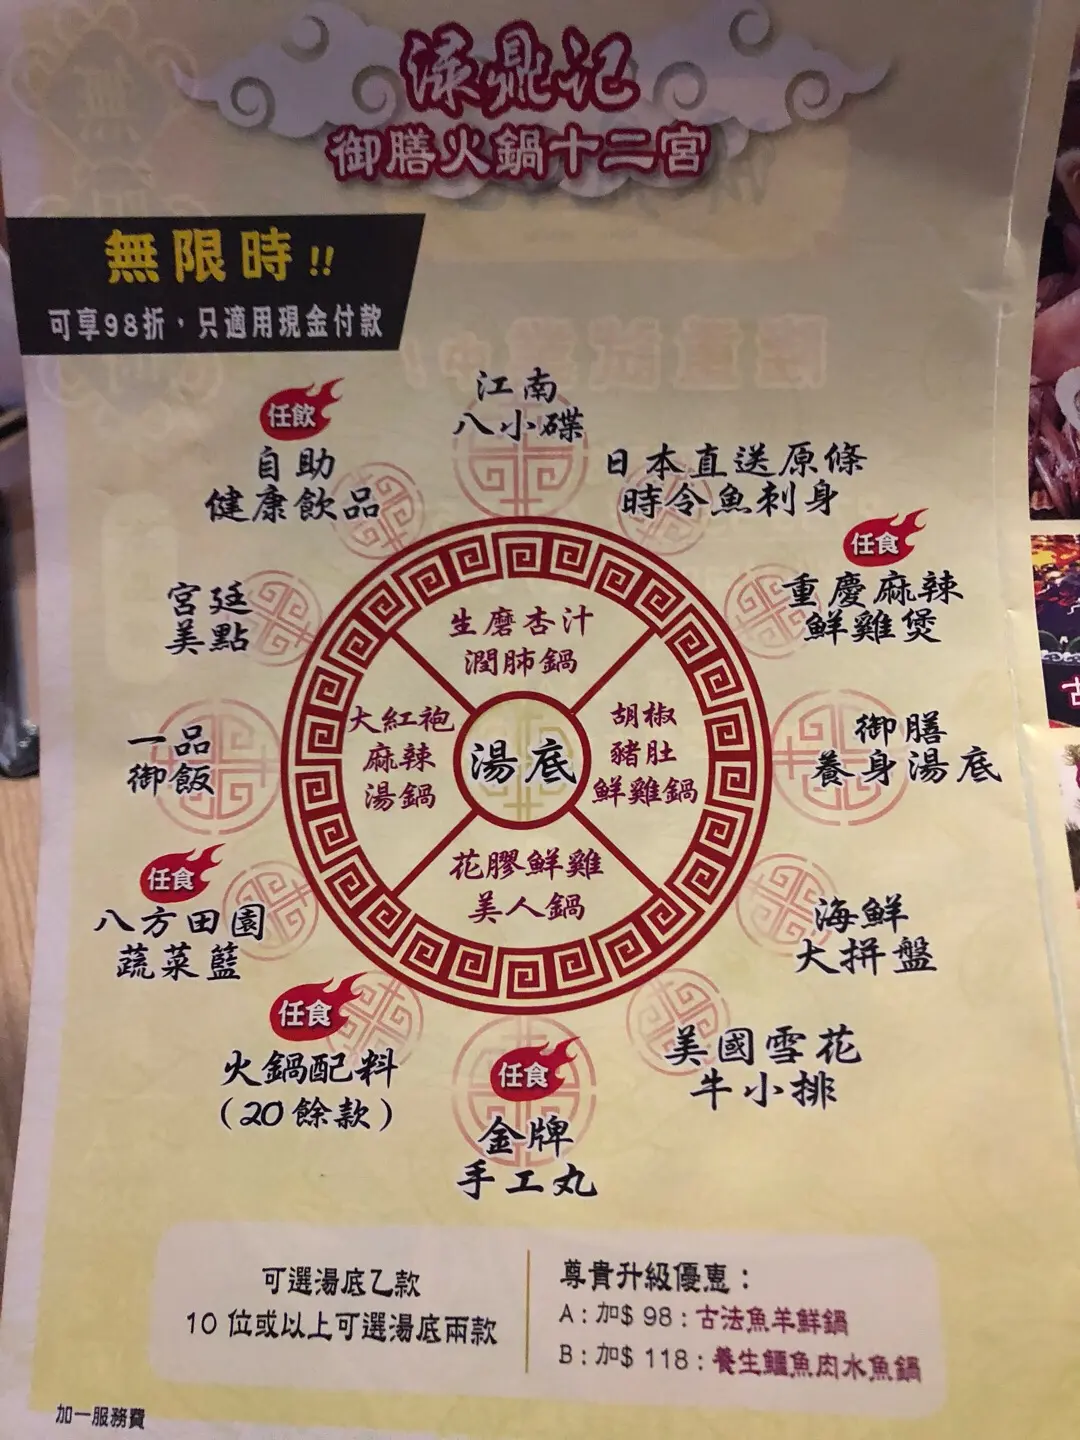 渌鼎记
御膳火鍋十二宮
無限時!!
可享98折，只適用現金付款
江南
八小碟
日本直送原條
時令魚刺身
任食
重慶麻辣
鮮雞煲
御膳
養身湯底
海鮮
大拼盤
美國雪花
牛小排
任食
金牌
手工丸
任食
火鍋配料
(20餘款)
任食
八方田園
蔬菜籃
一品
御飯
宮廷
美點
任飲
自助
健康飲品
生磨杏汁
潤肺鍋
胡椒
豬肚
鮮雞鍋
花膠鮮雞
美人鍋
大紅袍
麻辣
湯鍋
湯底
可選湯底乙款
10 位或以上可選湯底兩款
尊貴升級優惠：
A：加$ 98：古法魚羊鮮鍋
B：加$ 118：養生鱷魚肉水魚鍋
加一服務費